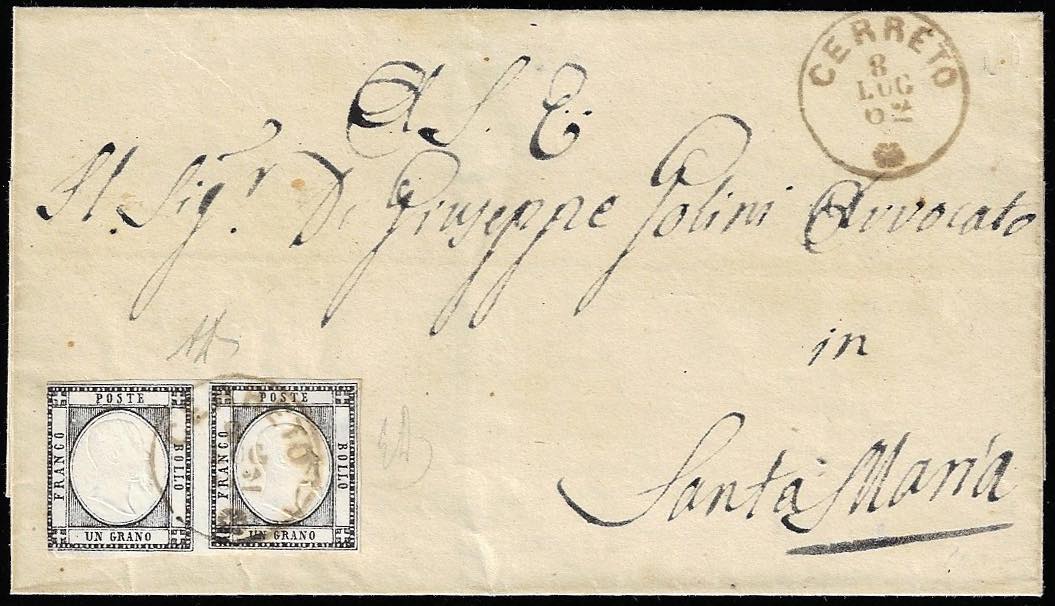 CERRETO
8
LUG
62
A S. E.
Il Sigr. D. Giuseppe Polini Avvocato
in
Santa Maria
POSTE
FRANCO
BOLLO
UN GRANO
POSTE
FRANCO
BOLLO
UN GRANO
LUG